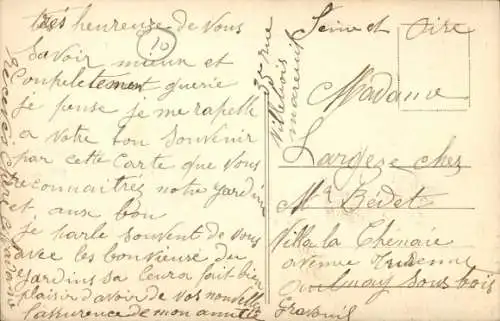 très heureuse de vous
savoir mieux et
Complètement guérie
je pense je me rapelle
a votre bon souvenir
par cette Carte que vous
reconnaitrez notre jardin
et aux bon
je parle souvent de vous
avec les bonvieux du
jardins sa leur a fait bien
plaisir d'avoir de vos nouvelles
l'assurence de mon amitié
Recevez
10
35 rue
Villebois
mareuil
Seine et Oise
Madame
Largese chez
Mr Bedet
Villa la Chenaie
avenue
Aulnay sous bois